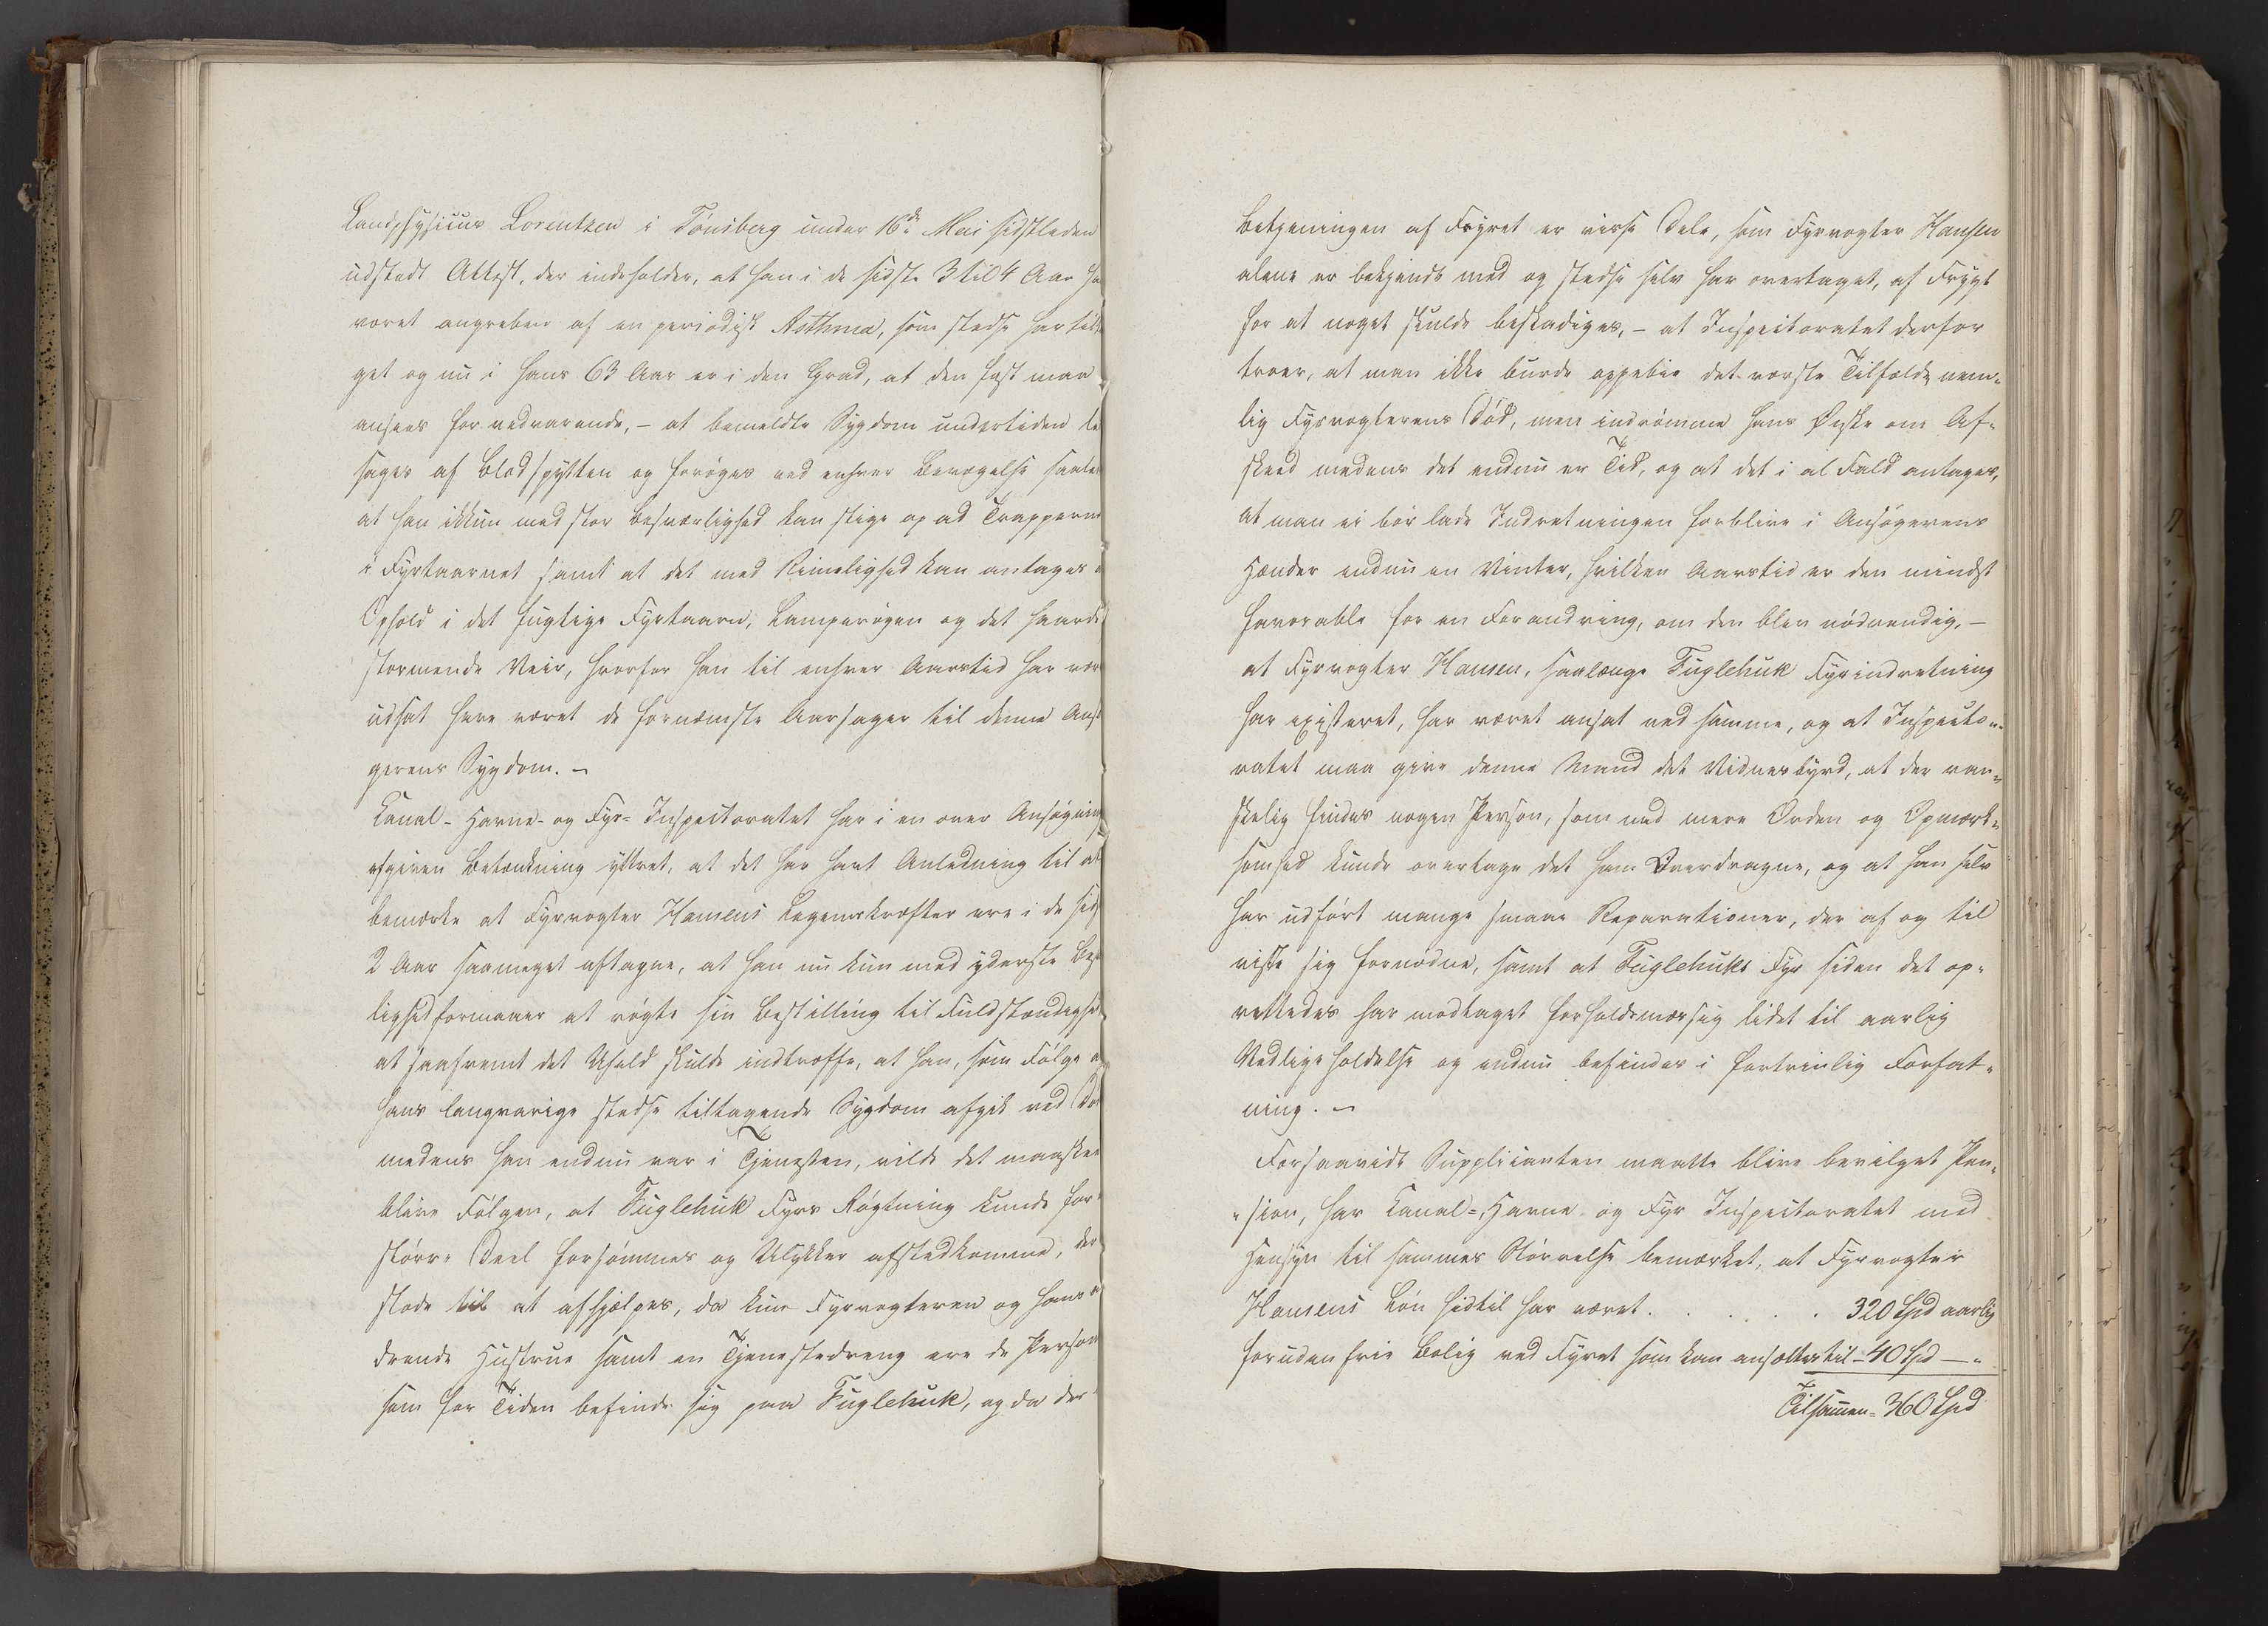 Landphysicus Lorentzen i Tönsberg under 16de Mai sidstleden
udstedt Attest, der indeholder, at han i de sidste 3 til 4 Aar ha
været angreben af en periodisk Asthma, som stedse har tilta
get og nu i hans 63 Aar er i den Grad, at den fast maa
ansees for vedvarende, – at bemeldte Sygdom undertiden le
sages af Blodspytten og forøges ved enhver Bevægelse saale
at han ikkun med stor Besværlighed kan stige op ad Trapperne
i Fyrtaarnet samt at det med Rimelighed kan antages
Ophold i det fugtige Fyrtaarn, Lamperøgen og det haarde
stormende Veir, hvorfor han til enhver Aarstid har vær
udsat have været de fornemste Aarsager til denne Ansø
gerens Sygdom. –
Canal- Havne- og Fyr- Inspectoratet har i en over Ansøgning
afgiven Betænkning yttret, at det har havt Anledning til at
bemærke at Fyrvogter Hansens Legemskræfter ere i de sids
2 Aar saameget aftagne, at han nu kun med yderste Besv
lighed formaaer at røgte sin Bestilling til Fuldstændighed
at saafremt det Uheld skulde indtræffe, at han, som Følge a
hans langvarige stedse tiltagende Sygdom afgik ved Dø
medens han endnu var i Tjenesten, vilde det maaskee
blive Følgen, at Fuglehuk Fyrs Røgtning kunde for
større Deel forsømmes og Ulykker afstedkomme, der
stode til at afhjælpes, da kun Fyrvogteren og hans
drende Hustrue samt en Tjenestedreng ere de Person
som for Tiden befinde sig paa Fuglehuk, og da der
Betjeningen af Fyret er visse Dele, som Fyrvogter Hansen
alene er bekjendt med og stedse selv har overtaget, af Frygt
for at noget skulde beskadiges, – at Inspectoratet derfor
troer, at man ikke burde oppebie det værste Tilfælde nem-
lig Fyrvogterens Død, men indrømme hans Ønske om Af-
skeed medens det endnu er Tid, og at det i al Fald antages,
at man ei bör lade Indretningen forblive i Ansøgerens
Hænder endnu en Vinter, hvilken Aarstid er den mindst
favorable for en Forandring, om den blev nödvendig, –
at Fyrvogter Hansen, saalænge Fuglehuk Fyrindretning
har existeret, har været ansat ved samme, og at Inspecto-
ratet maa give denne Mand det Vidnesbyrd, at der van-
skelig findes nogen Person, som med mere Orden og Opmærk-
somhed kunde overtage det ham Overdragne, og at han selv
har udført mange smaae Reparationer, der af og til
viste sig fornødne, samt at Fuglehuks Fyr siden det op-
rettedes har modtaget forholdsmæssig lidet til aarlig
Vedligeholdelse og endnu befindes i fortrinlig Forfat-
ning. –
Forsaavidt Supplicanten maatte blive bevilget Pen-
sion, har Canal-, Havne og Fyr Inspectoratet med
Hensyn til sammes Størrelse bemærket, at Fyrvogter
Hansens Løn hidtil har været . . . . . . 320 Spd aarlig
foruden frie Bolig ved Fyret som kan ansættes til - 40 Spd — "
Tilsammen - 360 Spd